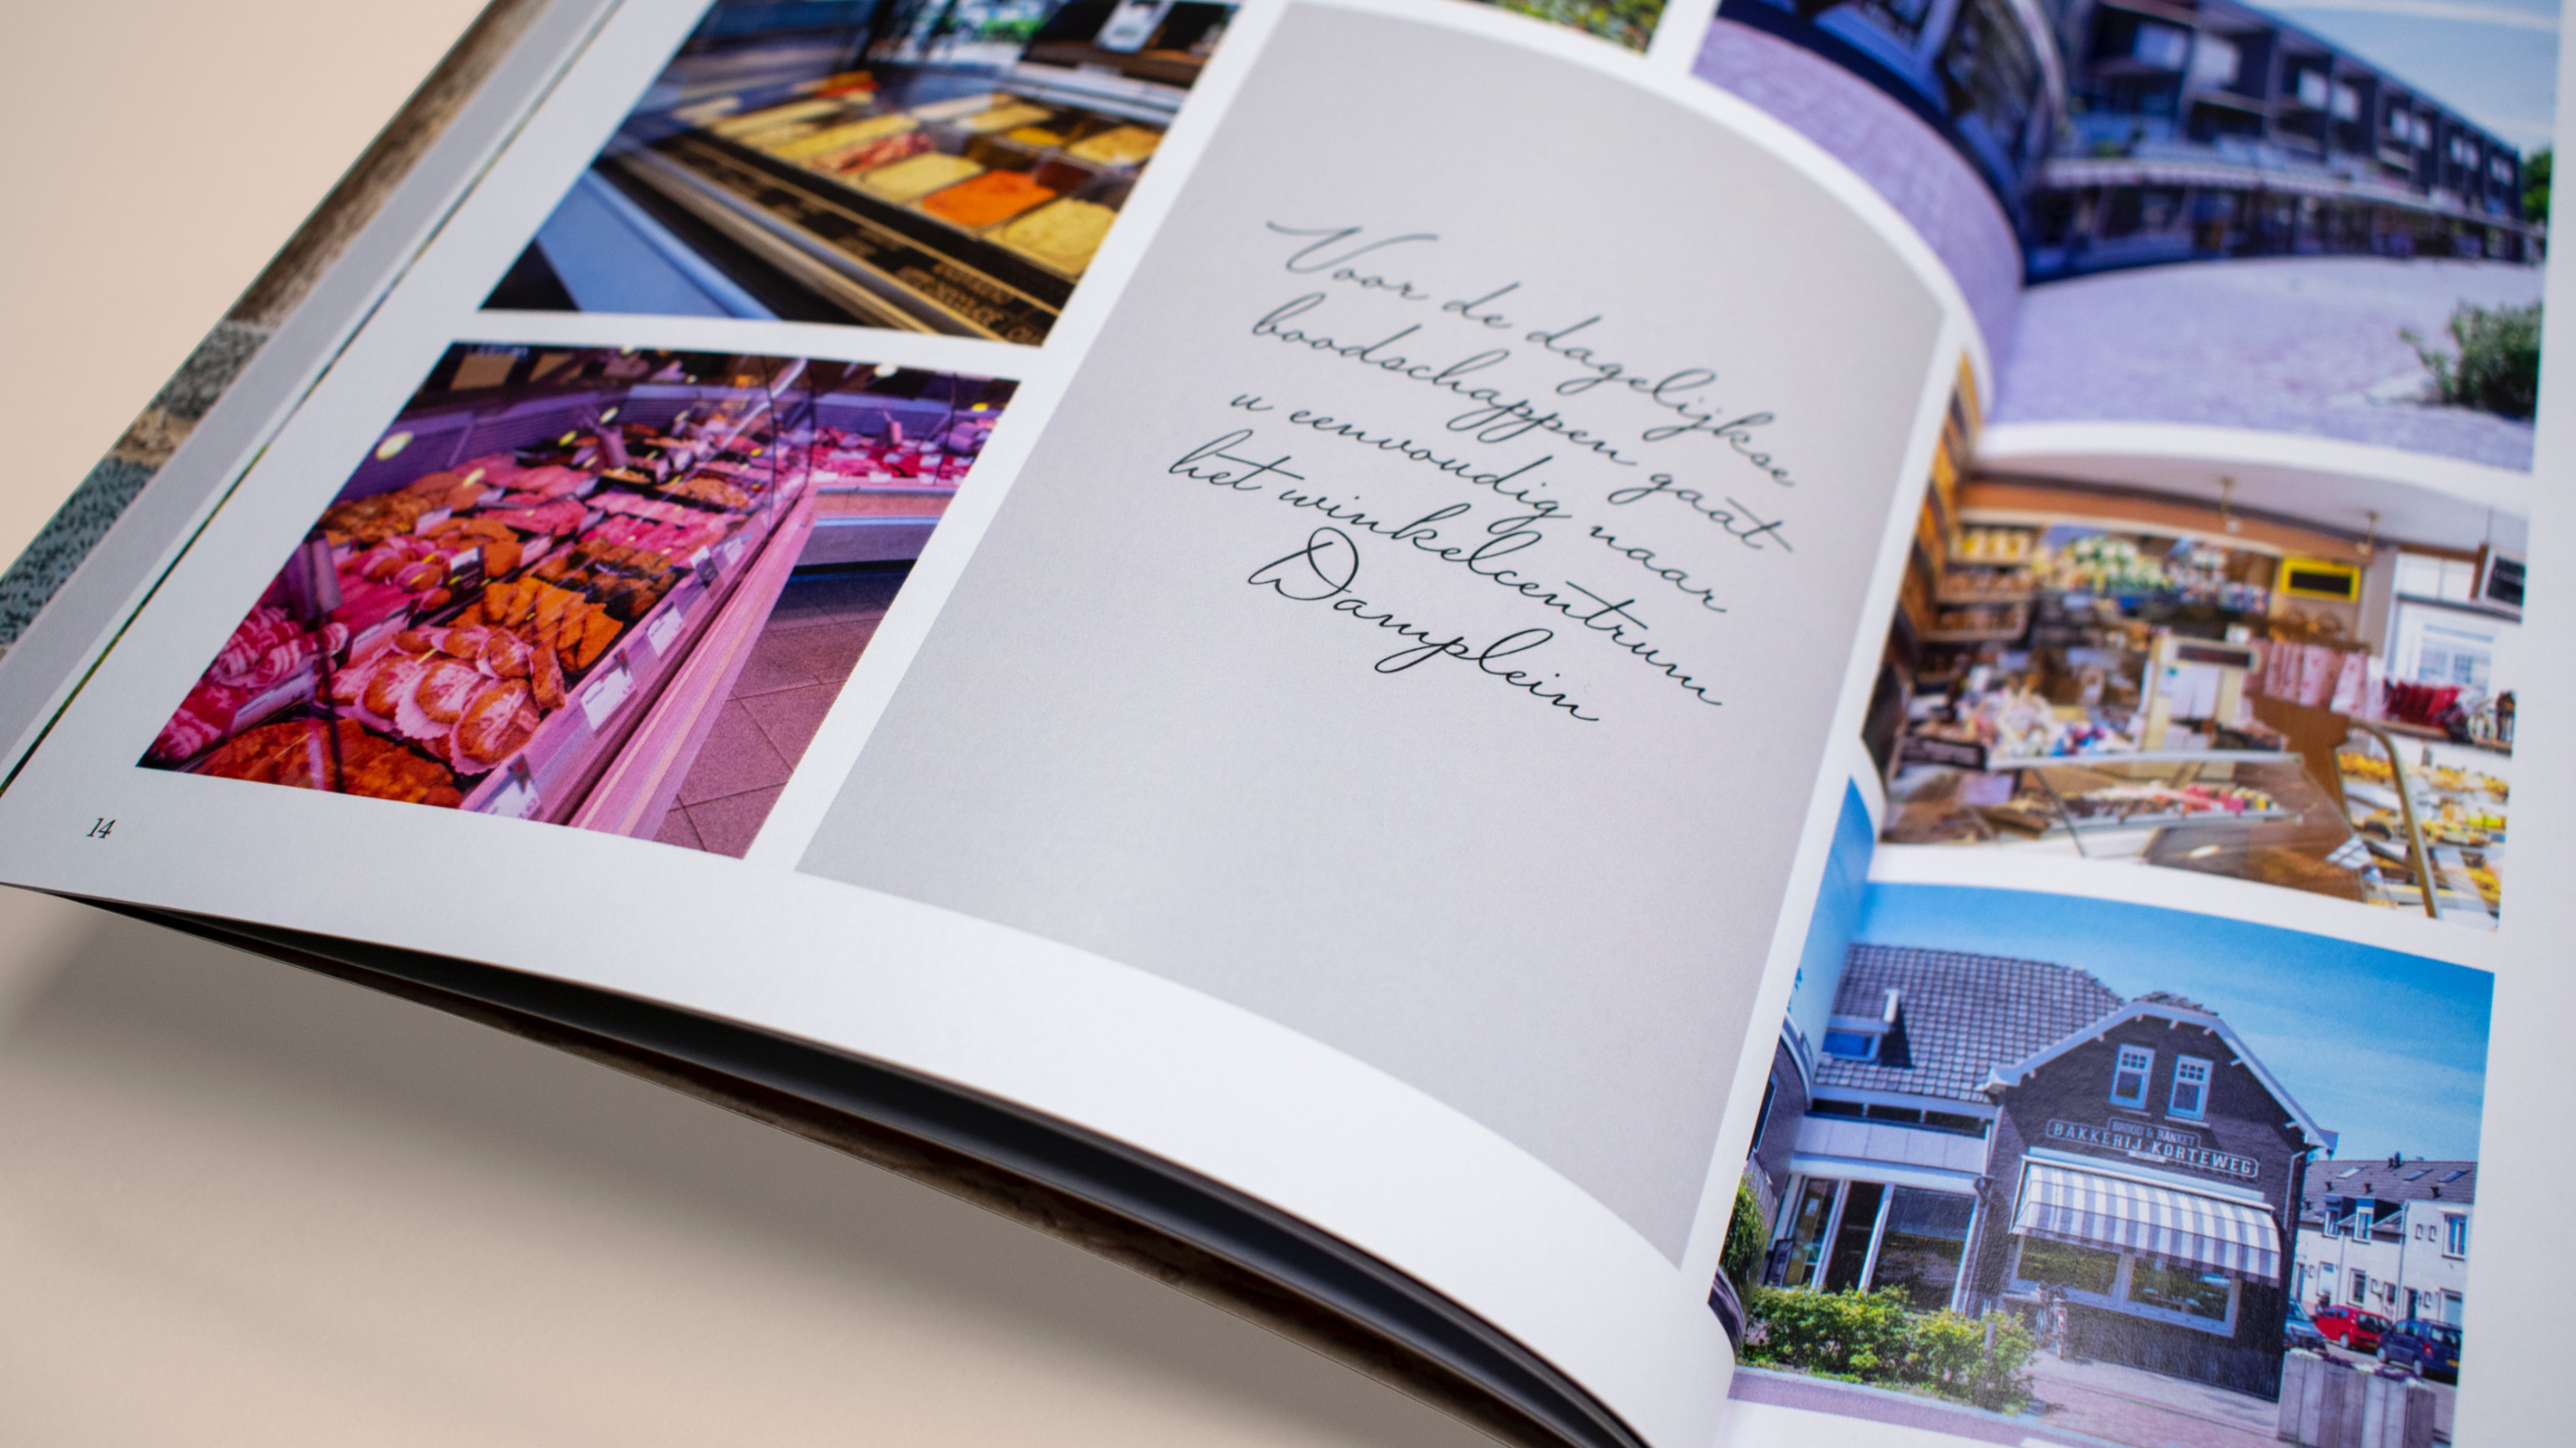 Voor de dagelijkse
boodschappen gaat
u eenvoudig naar
het winkelcentrum
Damplein
14
BROOD & BANKET
BAKKERIJ KORTEWEG